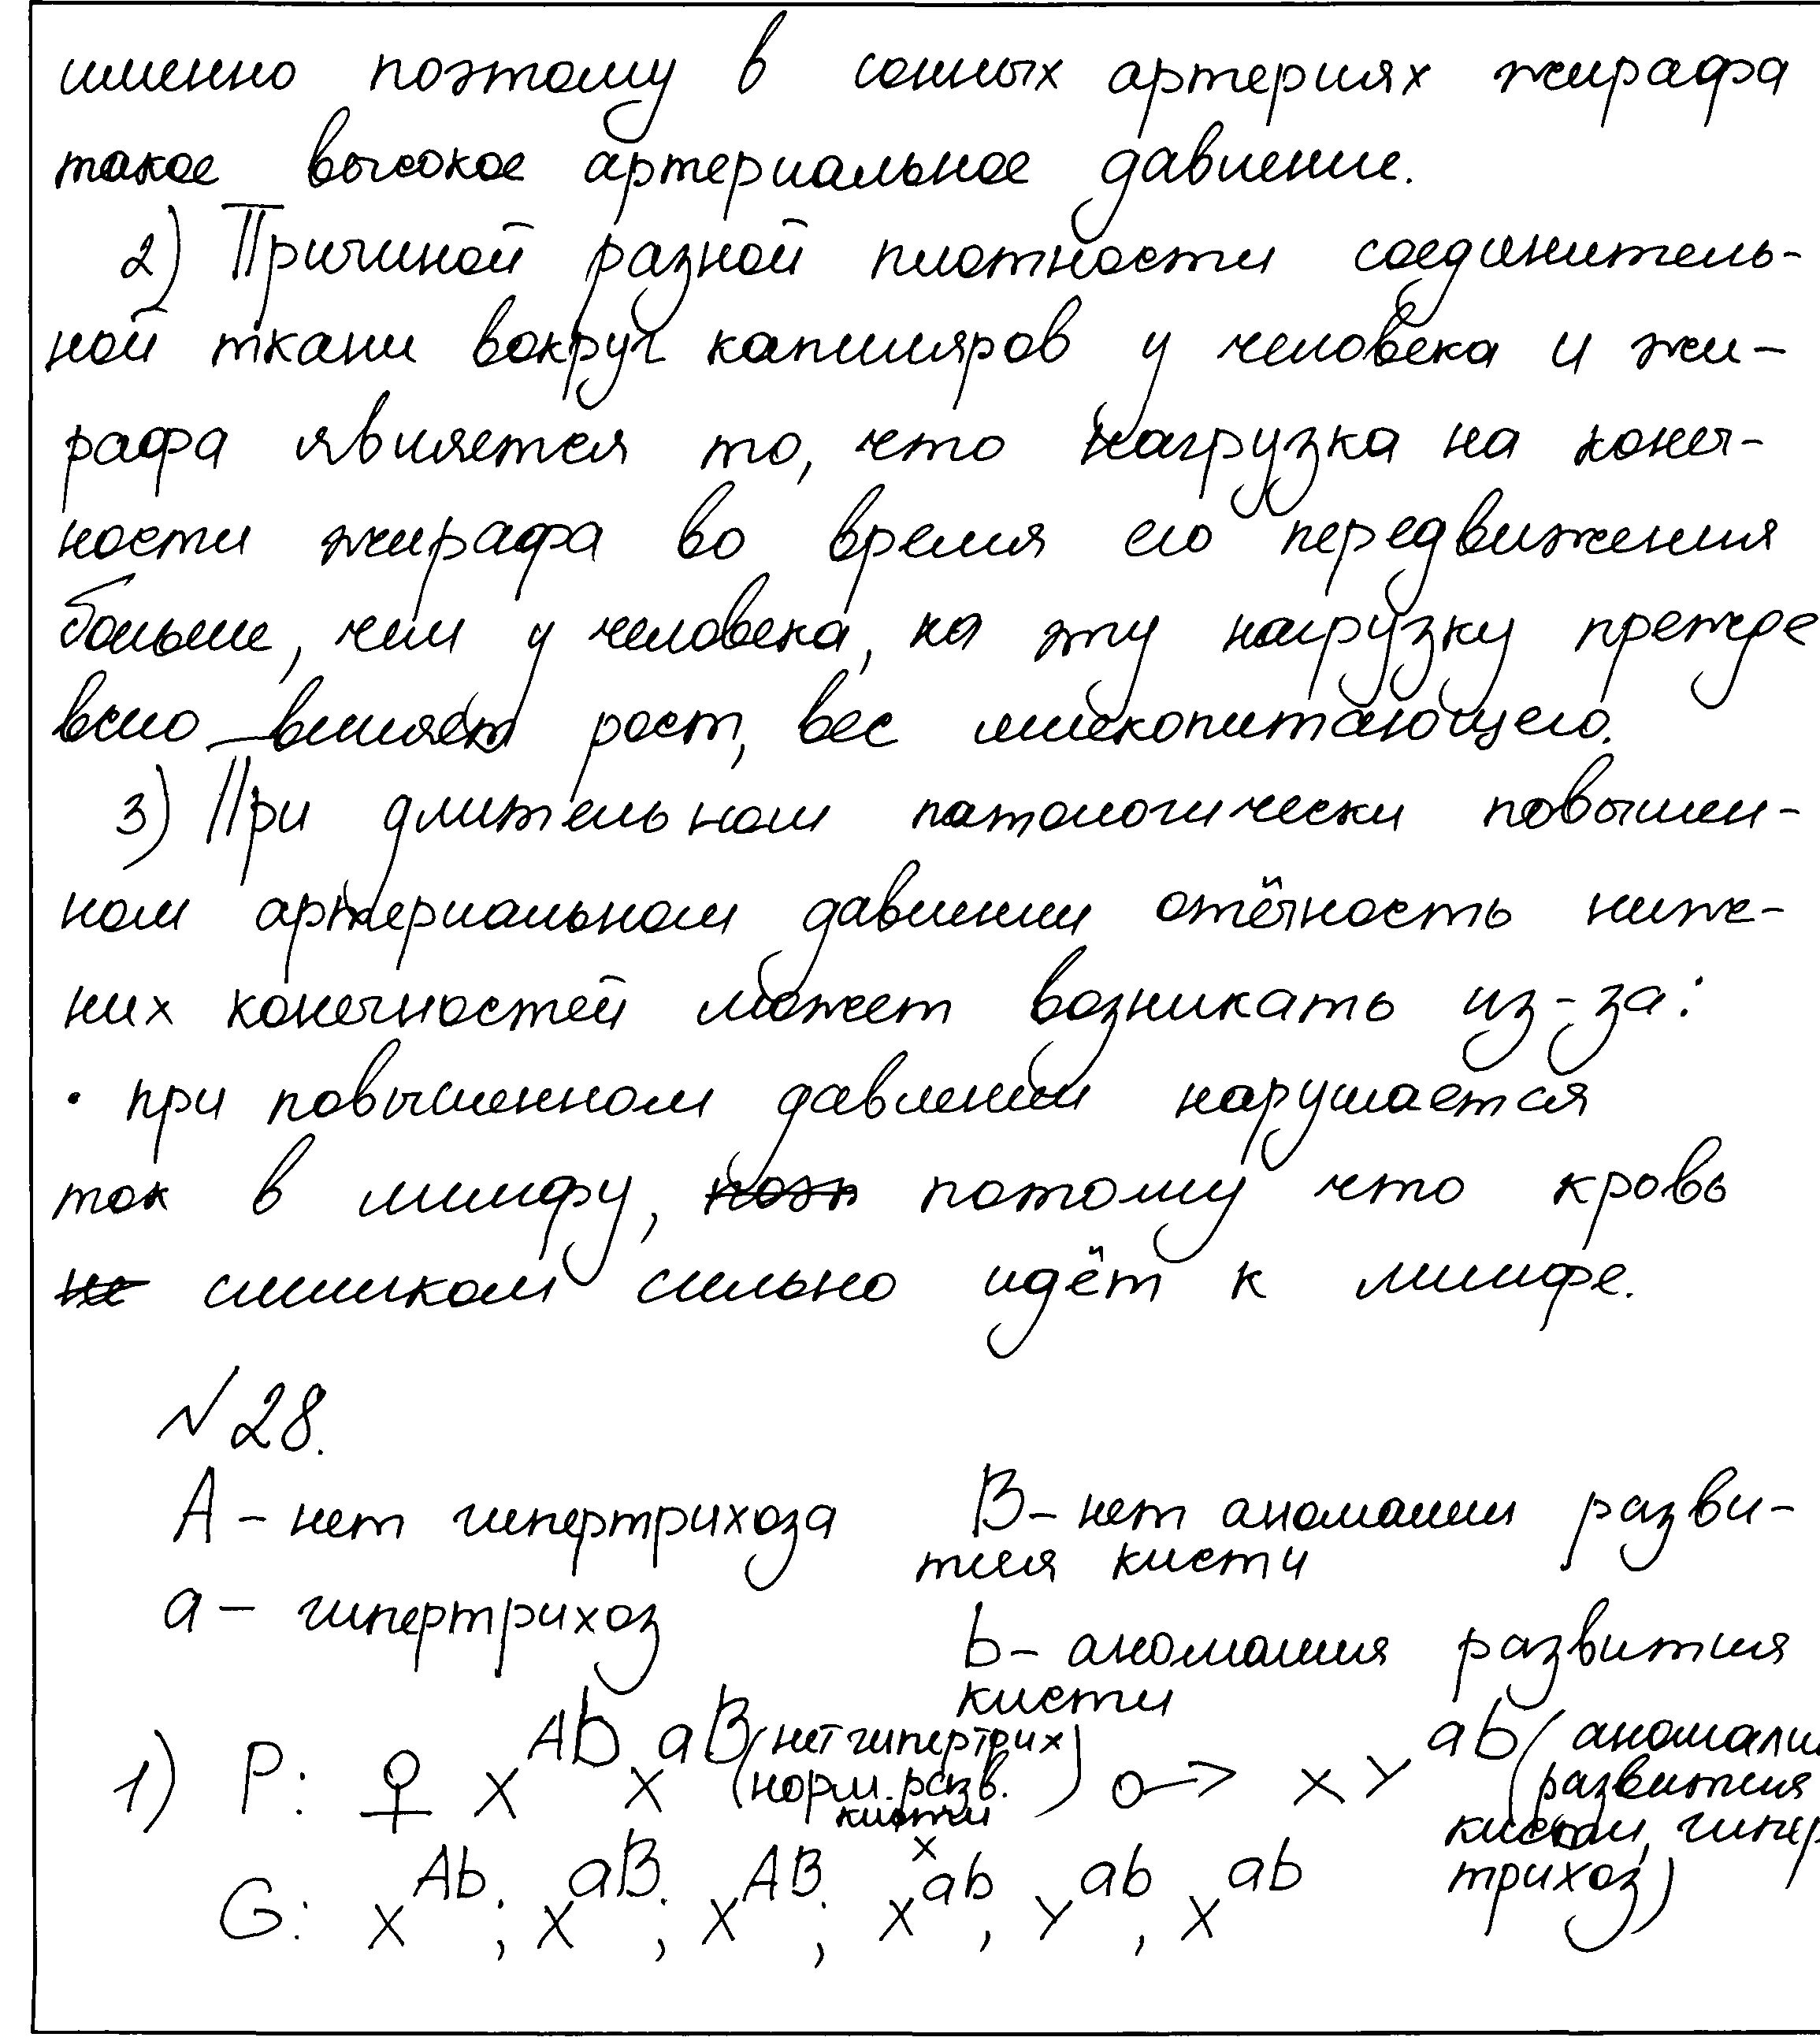 именно поэтому в сонных артериях жирафа
такое высокое артериальное давление.
2) Причиной разной плотности соединитель-
ной ткани вокруг капилляров у человека и жи-
рафа является то, что нагрузка на конеч-
ности жирафа во время его передвижения
больше, чем у человека, на эту нагрузку прежде
всего влияет рост, вес млекопитающего.
3) При длительном патологически повышен-
ном артериальном давлении отёчность ниж-
них конечностей может возникать из-за:
• при повышенном давлении нарушается
ток в лимфу, потому что кровь
слишком сильно идёт к лимфе.
№ 28.
A – нет гипертрихоза B – нет аномалии разви-
тия кисти
a – гипертрихоз
b – аномалия развития
кисти
1) P: ♀ X^Ab X^aB (нет гипертрих норм. разв. кисти) ♂ X Y^ab (аномалия развития кисти, гипертрихоз)
G: X^Ab; X^aB; X^AB; X^ab, Y^ab, X^ab